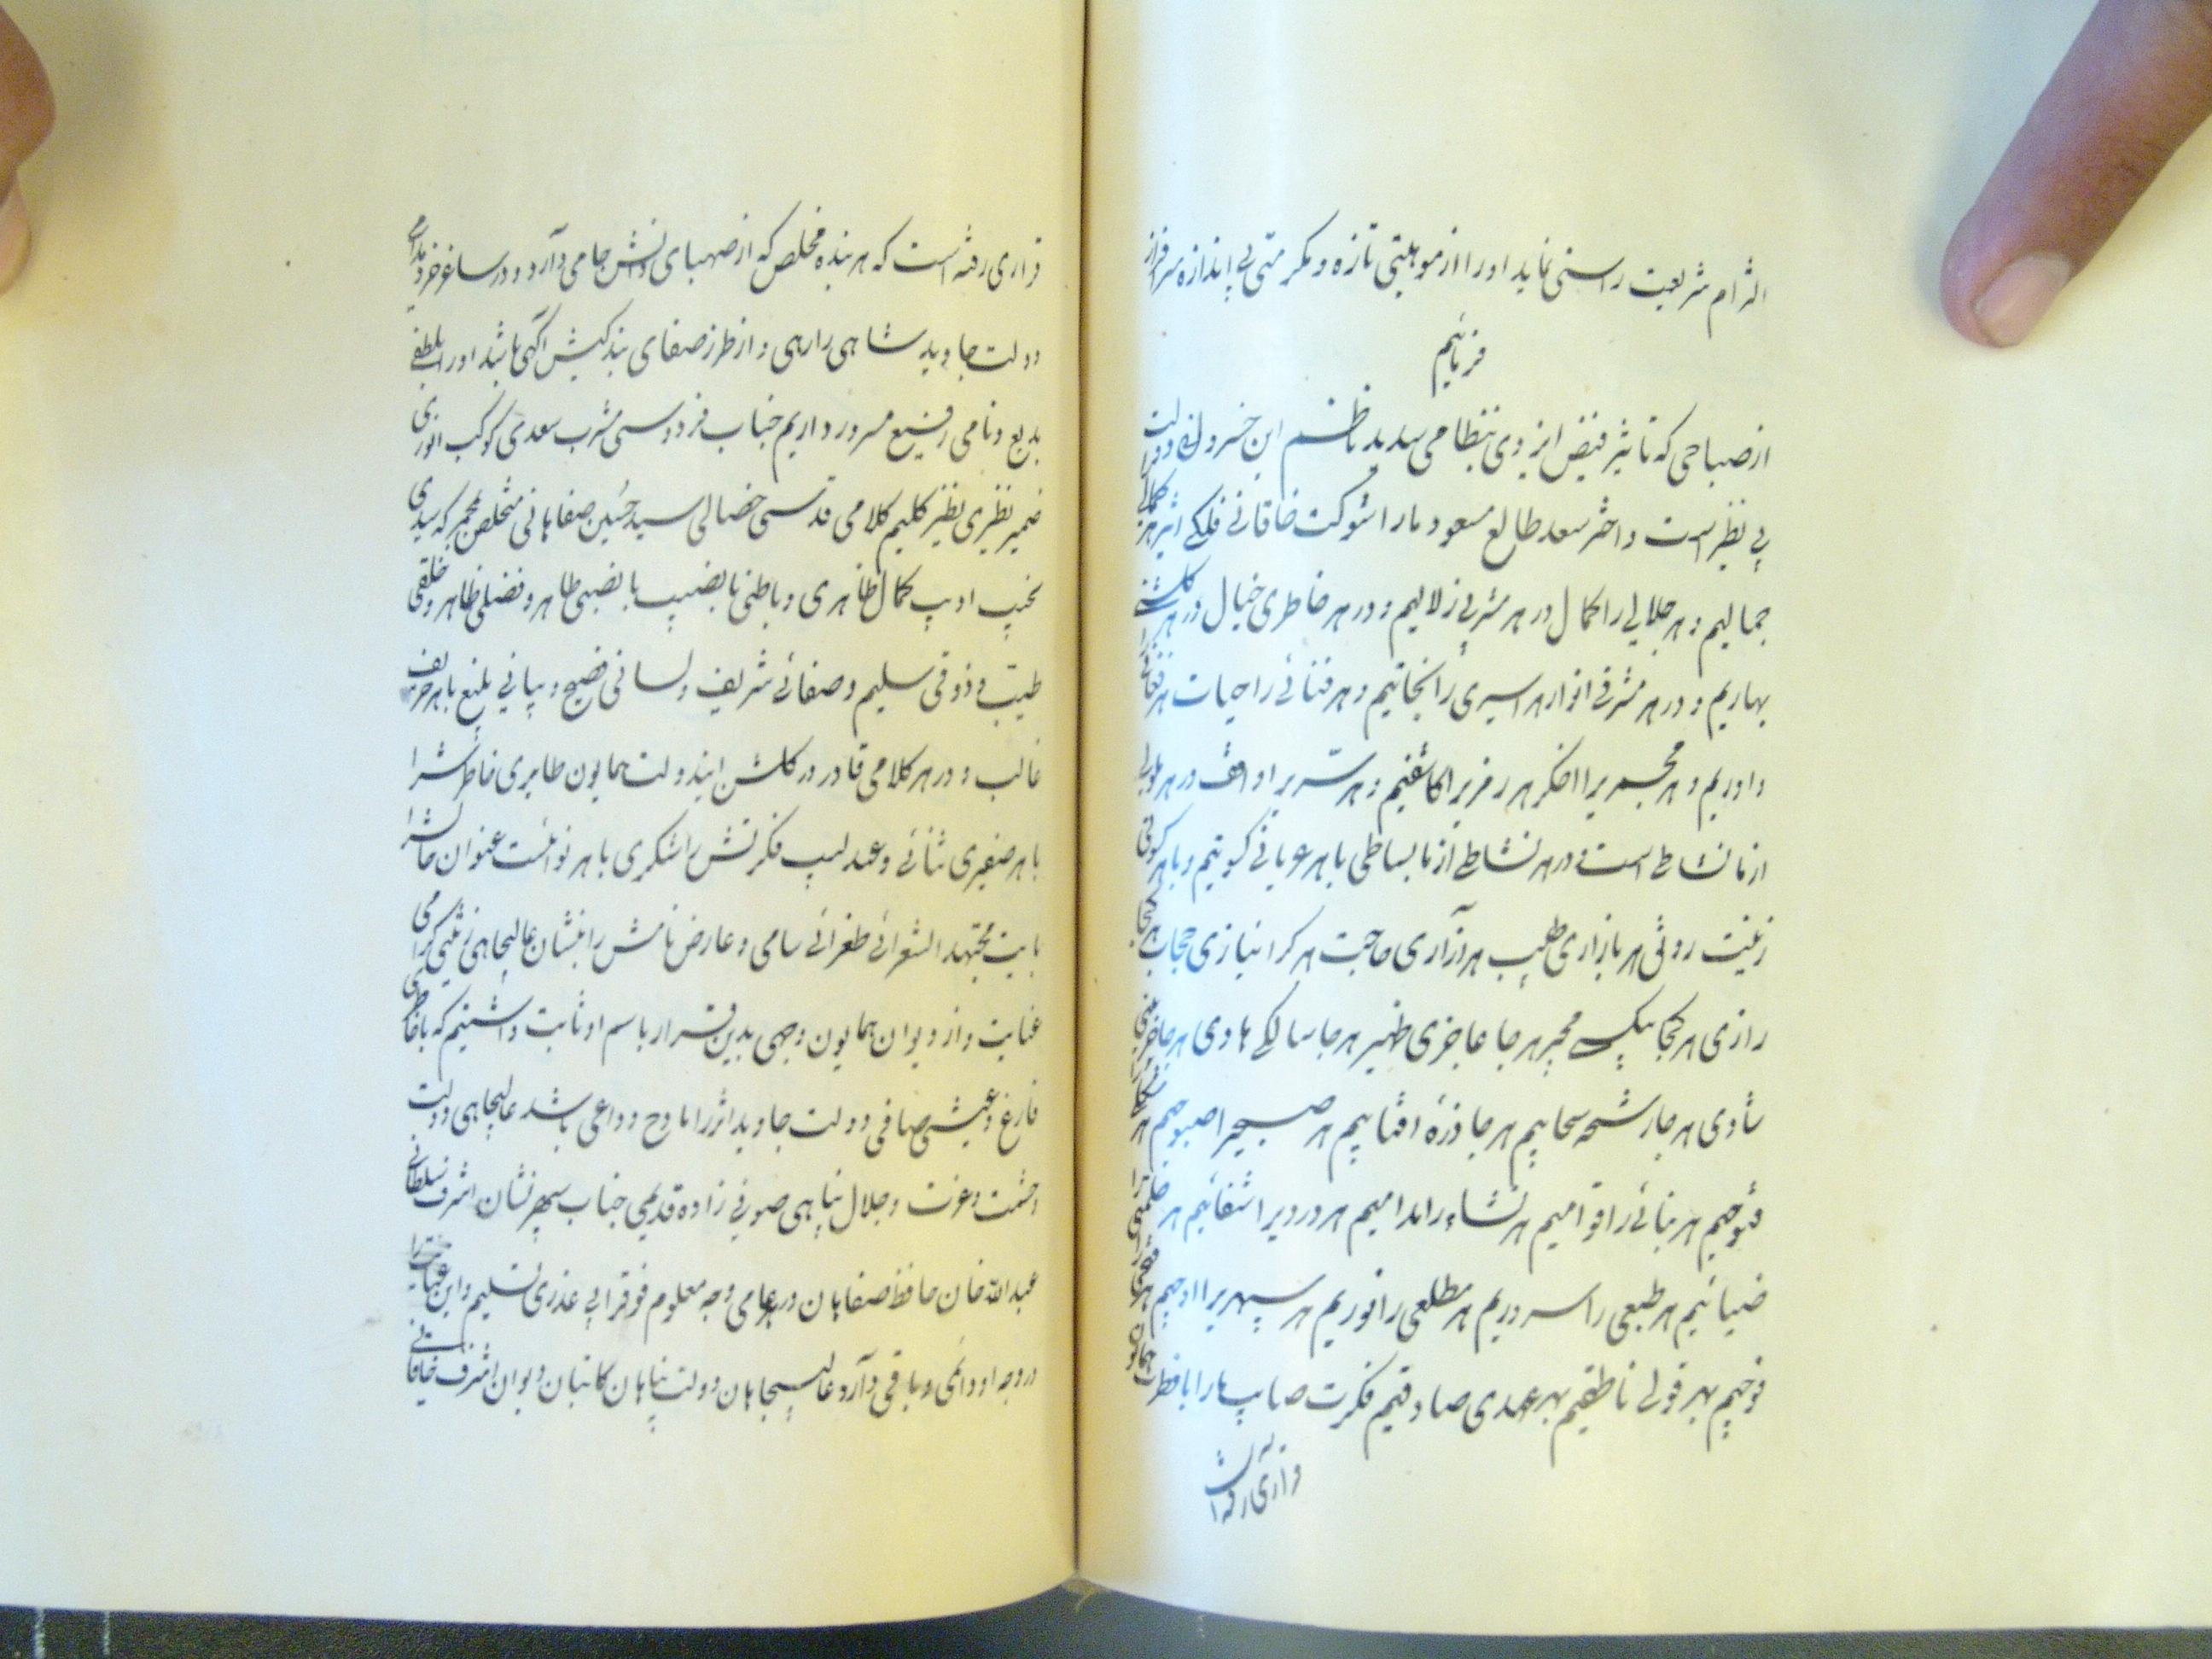 التزام شریعت راستی نماید او را از موهبتی تازه و مکرمتی بی اندازه سرافراز
فرمائیم
از صباحی که تأثیر فیض ایزدی نظامی سدید ناظم این خسرو دولت
بی نظیر است و اختر سعد طالع مسعود ما را شوکت خاقانی فلکی اثیر هر
جمالیم و هر جلالی را کمال در هر مشربی زلالیم و در هر خاطری خیال در هر گلشنی
بهاریم و در هر مشرقی انوار هر اسیری را نجاتیم و هر فنائی را حیات هر
داوریم و هر مجمریرا اخگر هر رمزیرا کاشفیم و هر سریرا واقف در هر
از ما نشاط است و در هر نشاطی از ما بساطی با هر عریانی گوئیم و با هر گوئی
زینت روئی هر بازاری طبیب هر آزاری حاجت هر کرا نیازی حجاب هر
رازی هر کجا پیک مخبر هر جا عاجزی ظهیر هر جا سالکی هادی هر جا
شادی هر جا رشحه سحابیم هر جا ذره آفتابیم هر صبحیرا صبوحیم هر
فتوحیم هر بنائی را قوامیم هر نشاء را مدامیم هر دردیرا شفائیم هر ظلمتی را
ضیائیم هر طبعی را سروریم هر مطلعی را نوریم هر سپهریرا اوجیم هر
فوجیم بهر قولی ناطقیم بهر عهدی صادقیم فکرت صایب ما را با فطرت همایون
قراری رفته است
قراری رفته است که هر بنده مخلص که از صهبای دانش جامی دارد و در ساغر خرد مدامی
دولت جاوید شاهی را رهی و از طرز صفای بندگیش آگهی باشد او را بلطفی
بدیع و نامی رفیع مسرور داریم جناب فردوسی مشرب سعدی کوکب انوری
ضمیر نظیری نظیر کلیم کلامی قدسی خصالی سید حسین صفاهانی متخلص بمجمر که سیدی
نجیب ادیب کمال ظاهری و باطنی با نصیب با نصبی طاهر و فضلی ظاهر و خلقی
طیب و ذوقی سلیم و صفائی شریف و لسانی فصیح و بیانی بلیغ با هر حریف
غالب و در هر کلامی قادر در گلشن ایندولت همایون طایری خاطرش را
با هر صفیری ثنائی و عندلیب فکرتش را شکری با هر نوائیست عنوان حالش را
بایت مجتهد الشعرائی طغرائی سامی و عارض نامش را بنشان عالیجاهی زینتی گرامی
عنایت و از دیوان همایون وجهی بدین قرار باسم او ثابت داشتیم که با خاطری
فارغ و عیشی صافی دولت جاوید اثر را مادح و داعی باشد عالیجاهی دولت
و حشمت و عزت و جلال پناهی صوفی زاده قدیمی جناب سپهر نشان اشرف سلطانی
عبدالله خان حافظ صفاهان در هر عامی وجه معلوم فوق را بی عذری تسلیم و این عنایت را
در وجه او دائمی و باقی دارد عالیجاهان دولت پناهان کاتبان دیوان اشرف خاقانی